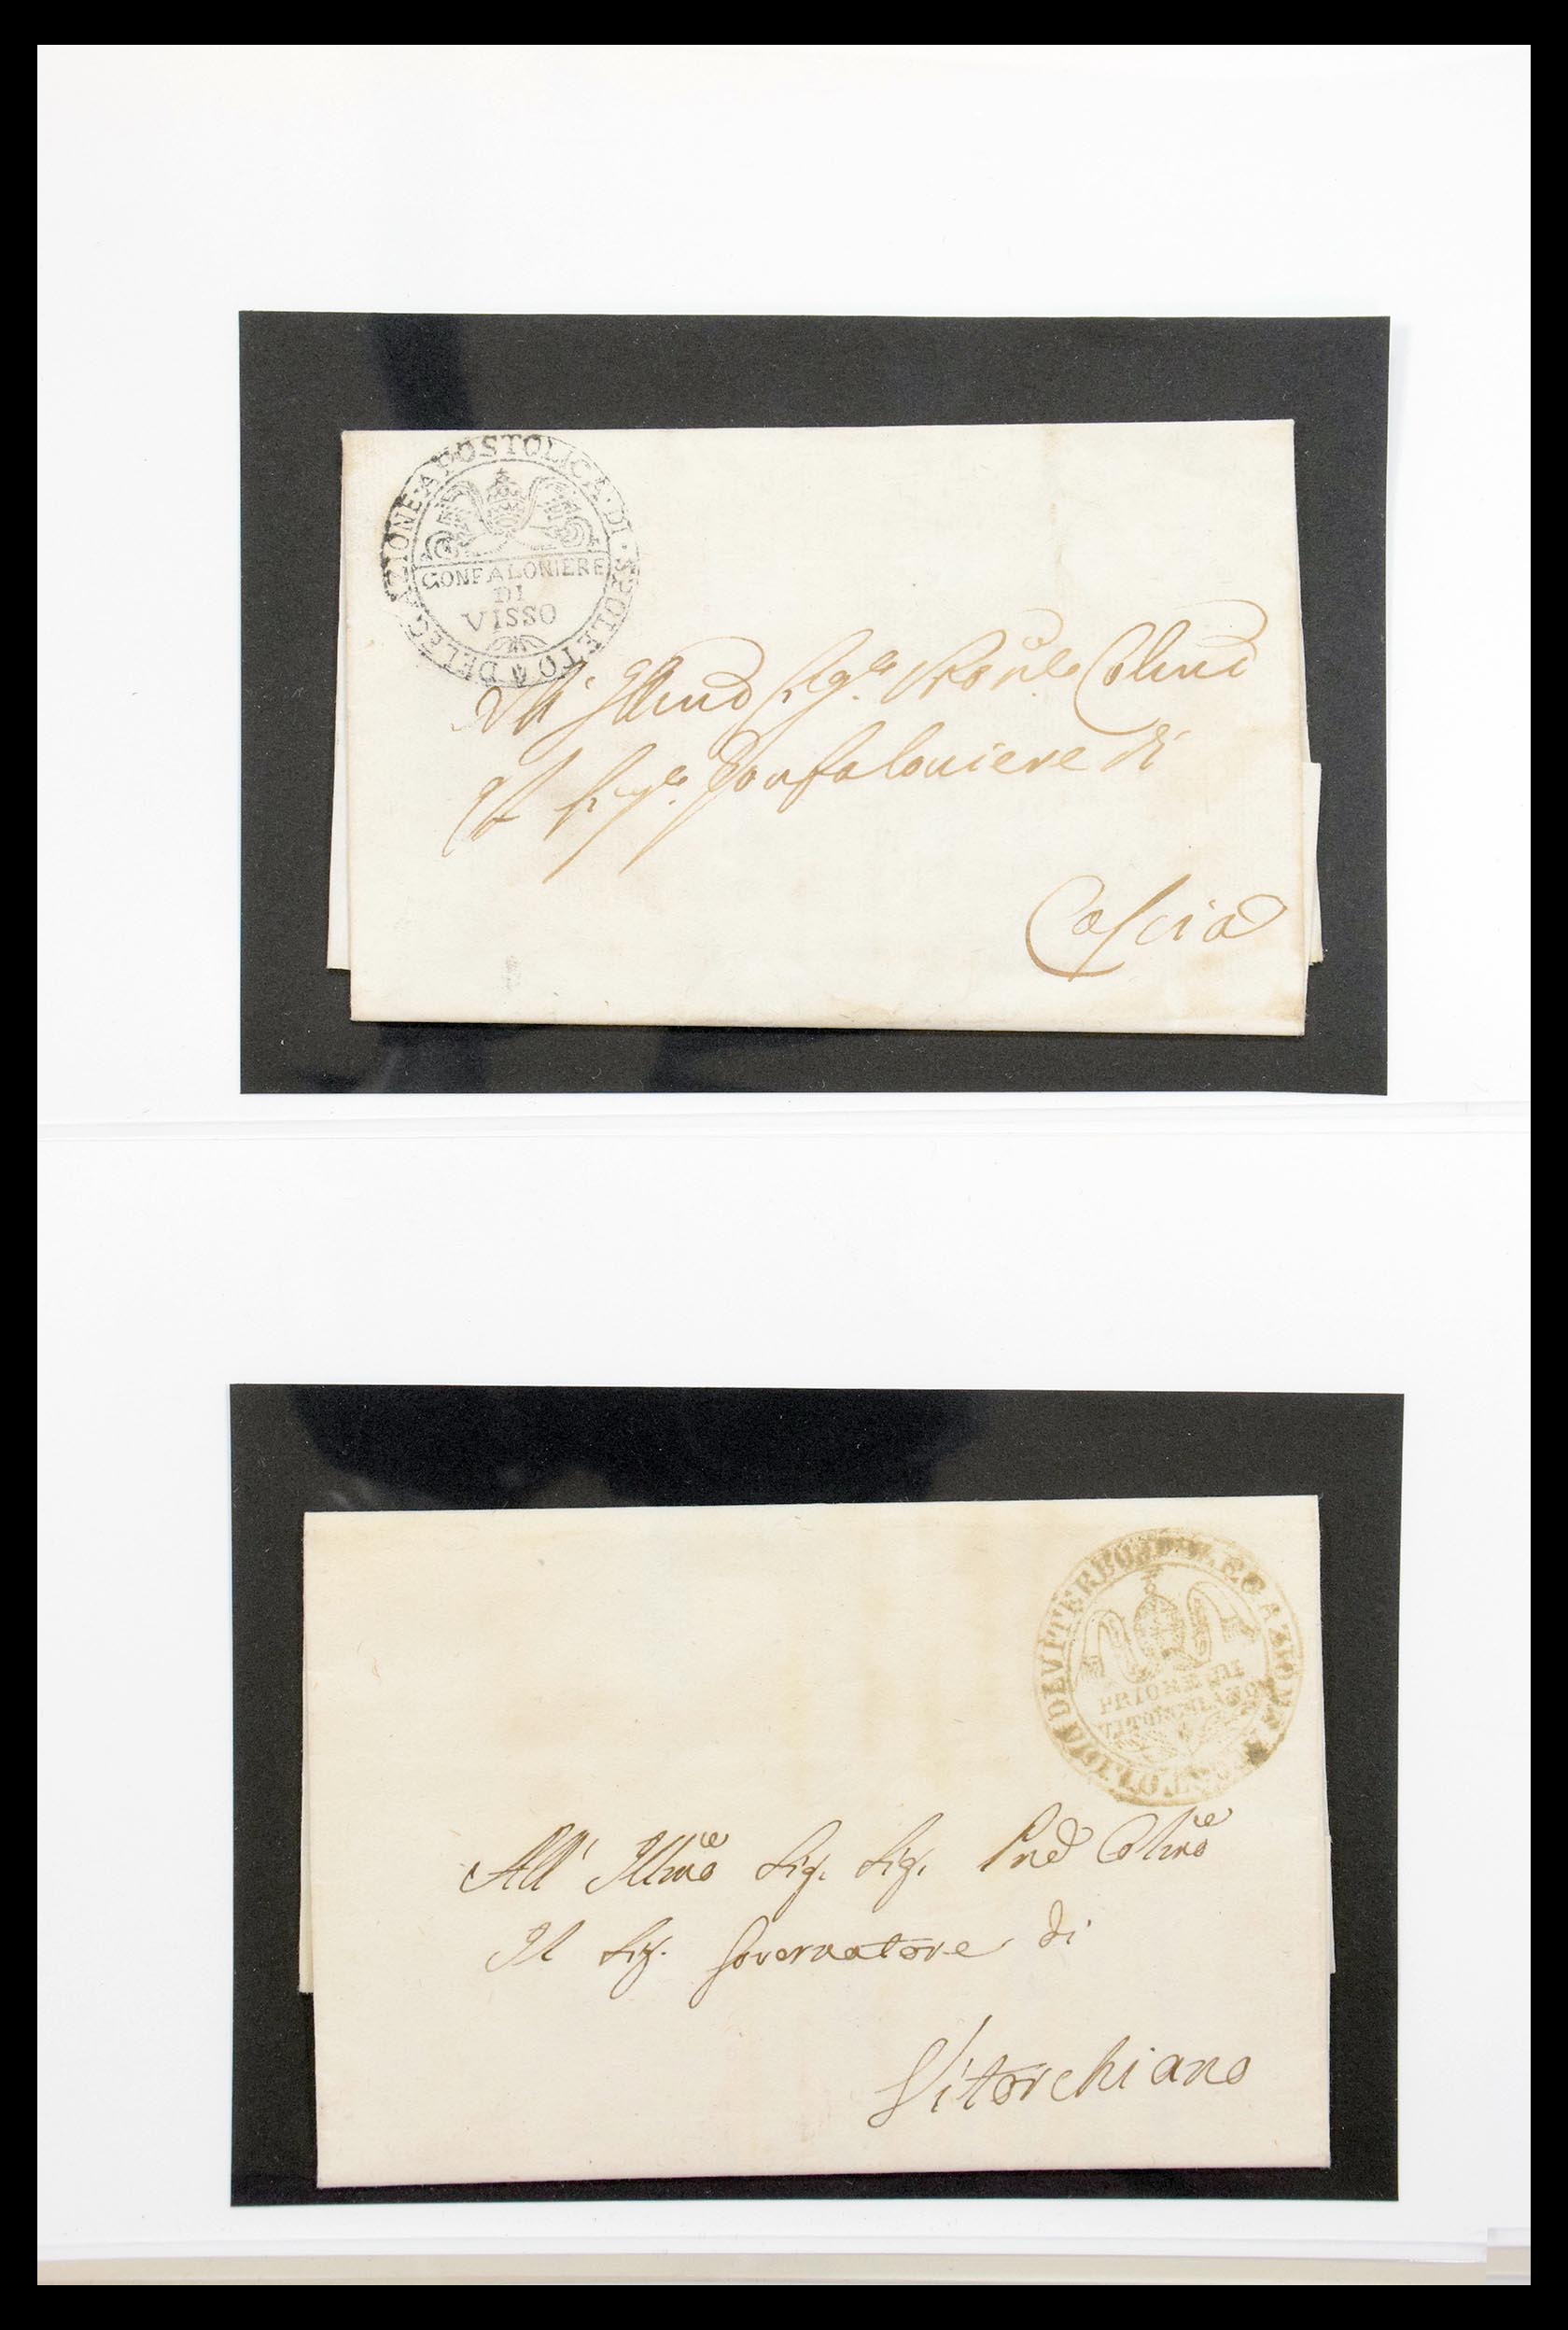 DELEGAZIONE·APOSTOLICA·DI·SPOLETO
GONFALONIERE
DI
VISSO
All' Illmo Sigre Prone Colmo
Il Sigre Gonfaloniere di
Cascia
DI VITERBO
PRIORE DI
VITORCHIANO
All' Illmo Sig. Sig. Prod Colmo
Il Sig. Governatore di
Vitorchiano